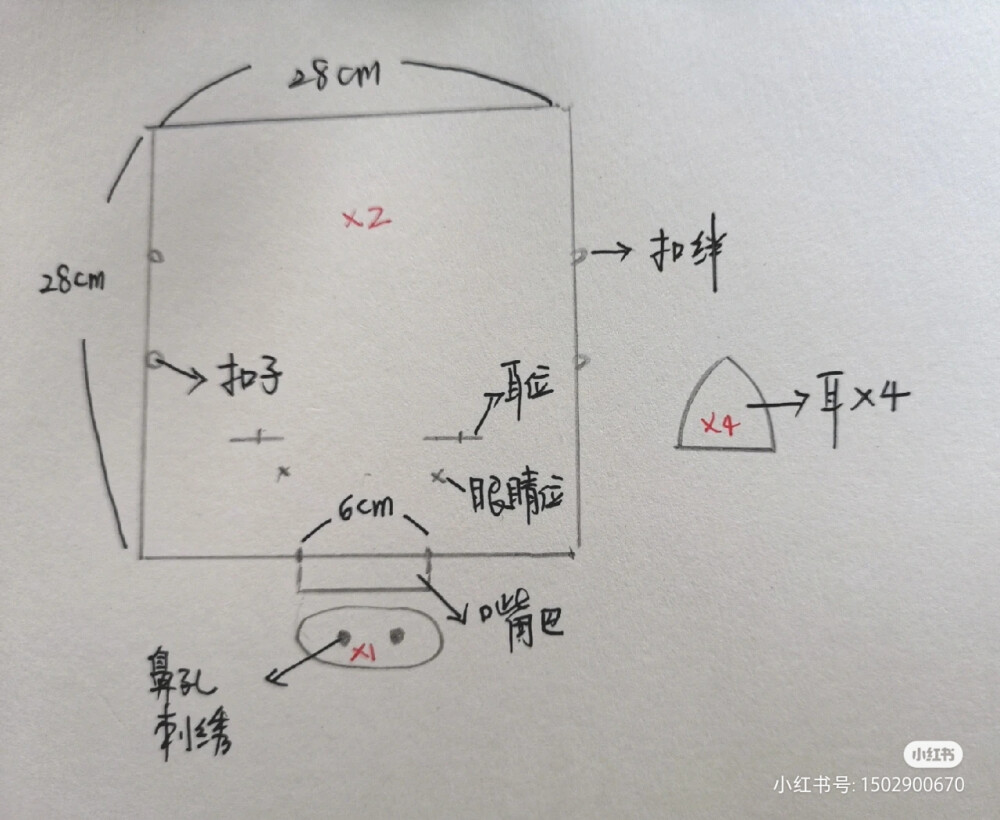 28cm
28cm
×2
扣绊
扣子
耳位
×4
耳×4
眼睛位
6cm
嘴巴
×1
鼻孔
刺绣
小红书
小红书号: 1502900670